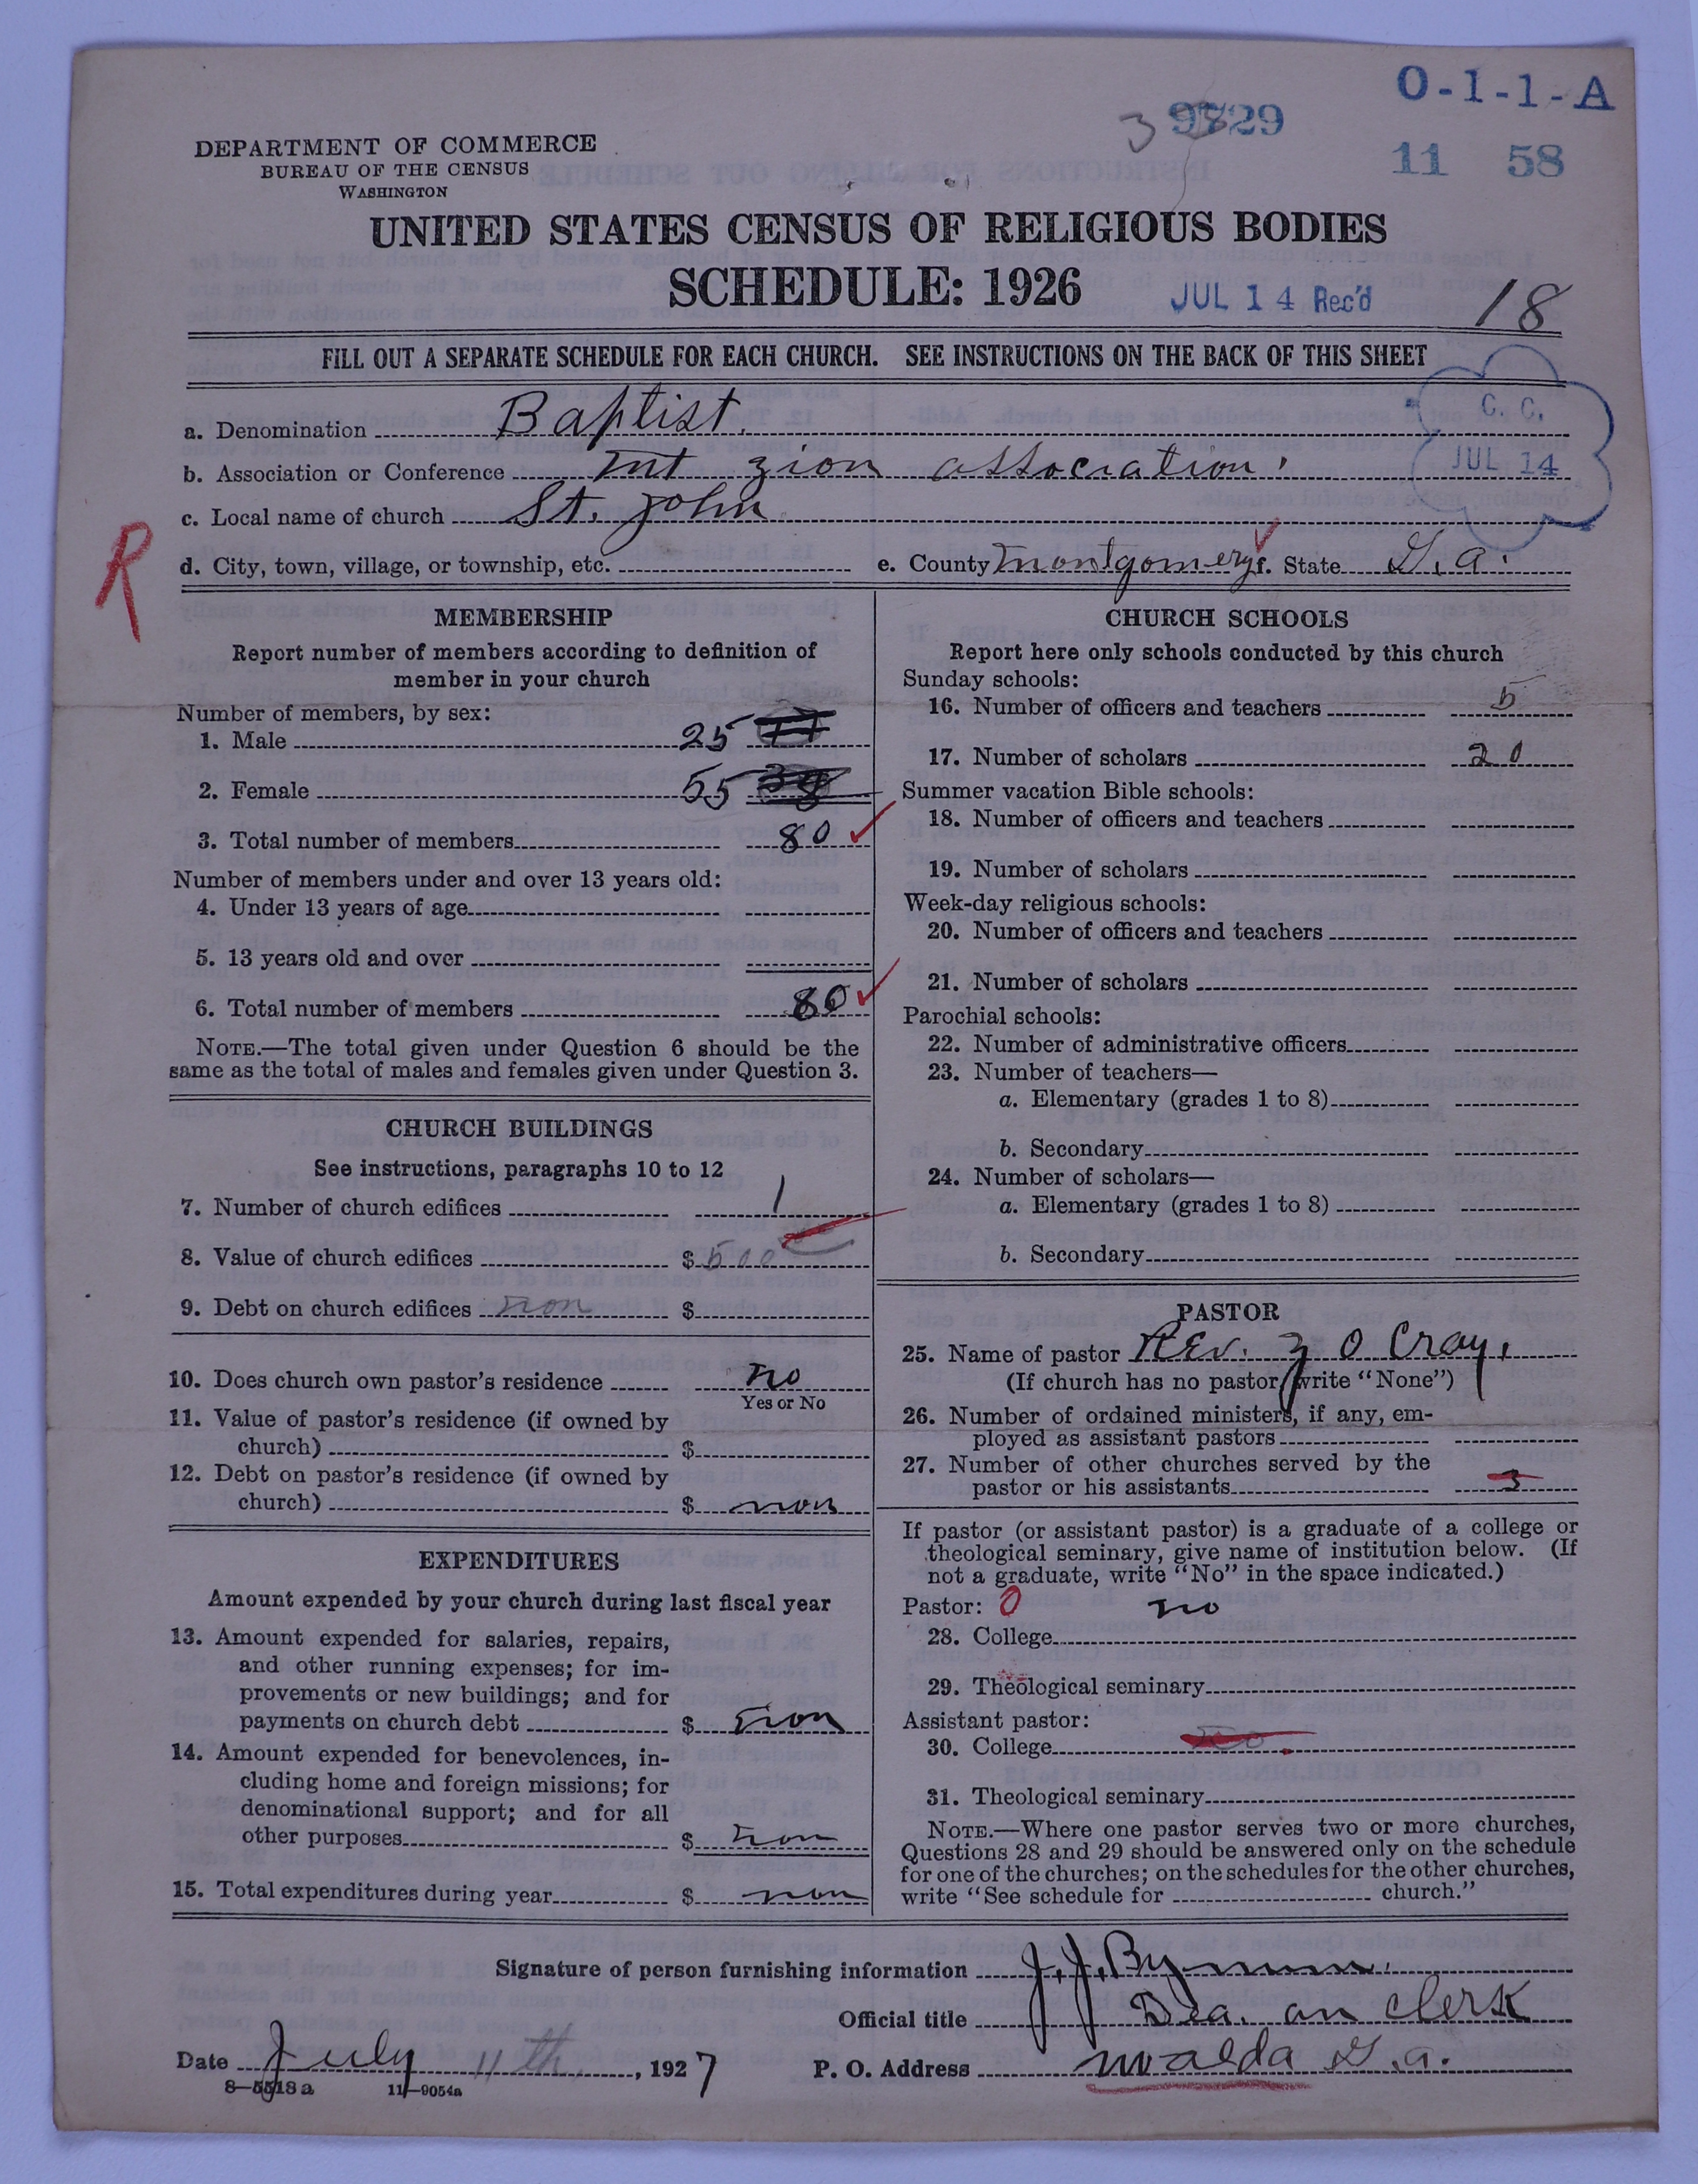 O-1-1-A
3 9729
11 58
DEPARTMENT OF COMMERCE
BUREAU OF THE CENSUS
WASHINGTON
UNITED STATES CENSUS OF RELIGIOUS BODIES
SCHEDULE: 1926
JUL 14 Rec'd
18
FILL OUT A SEPARATE SCHEDULE FOR EACH CHURCH. SEE INSTRUCTIONS ON THE BACK OF THIS SHEET
C. C.
JUL 14
a. Denomination Baptist.
b. Association or Conference mt zion association.
c. Local name of church St. John
R
d. City, town, village, or township, etc. e. County Montgomery f. State G.a.
MEMBERSHIP
Report number of members according to definition of
member in your church
Number of members, by sex:
1. Male 25
2. Female 55 38
3. Total number of members 80
Number of members under and over 13 years old:
4. Under 13 years of age
5. 13 years old and over
6. Total number of members 80
NOTE.—The total given under Question 6 should be the
same as the total of males and females given under Question 3.
CHURCH BUILDINGS
See instructions, paragraphs 10 to 12
7. Number of church edifices 1
8. Value of church edifices $ 500
9. Debt on church edifices non $
10. Does church own pastor's residence no
Yes or No
11. Value of pastor's residence (if owned by
church) $
12. Debt on pastor's residence (if owned by
church) $ non
EXPENDITURES
Amount expended by your church during last fiscal year
13. Amount expended for salaries, repairs,
and other running expenses; for im-
provements or new buildings; and for
payments on church debt $ non
14. Amount expended for benevolences, in-
cluding home and foreign missions; for
denominational support; and for all
other purposes $ non
15. Total expenditures during year $ non
CHURCH SCHOOLS
Report here only schools conducted by this church
Sunday schools:
16. Number of officers and teachers 5
17. Number of scholars 20
Summer vacation Bible schools:
18. Number of officers and teachers
19. Number of scholars
Week-day religious schools:
20. Number of officers and teachers
21. Number of scholars
Parochial schools:
22. Number of administrative officers
23. Number of teachers—
a. Elementary (grades 1 to 8)
b. Secondary
24. Number of scholars—
a. Elementary (grades 1 to 8)
b. Secondary
PASTOR
25. Name of pastor Rev. Z O Cray.
(If church has no pastor write "None")
26. Number of ordained ministers, if any, em-
ployed as assistant pastors
27. Number of other churches served by the
pastor or his assistants 3
If pastor (or assistant pastor) is a graduate of a college or
theological seminary, give name of institution below. (If
not a graduate, write "No" in the space indicated.)
Pastor: 0 no
28. College
29. Theological seminary
Assistant pastor:
30. College no
31. Theological seminary
NOTE.—Where one pastor serves two or more churches,
Questions 28 and 29 should be answered only on the schedule
for one of the churches; on the schedules for the other churches,
write "See schedule for church."
Signature of person furnishing information J. J. Bynum.
Official title Dea. an clerk
Date July 11th, 1927 P. O. Address uvalda G.a.
8—5518a 11—9054a